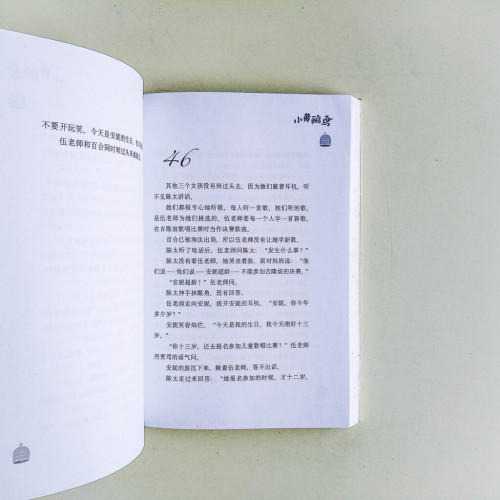 不要开玩笑，今天是安妮的生日，你
伍老师和百合同时转过头
小黄鹂鸟
46
其他三个女孩没有转过头去，因为她们戴着耳机，听
不见陈太讲话。
她们都很专心地听歌，每人听一首歌，她们听的歌，
是伍老师为她们挑选的，伍老师要每一个人学一首新歌，
在吉隆坡歌唱比赛时当作决赛歌曲。
百合已被淘汰出局，所以伍老师没有让她学新歌。
陈太听了电话后，伍老师问陈太：“发生什么事？”
陈太没有看伍老师，她哭丧着脸，面对妈妈说：“他
们说——他们说——安妮超龄——不能参加吉隆坡的决赛。”
“安妮超龄？”伍老师问。
陈太伸手抹眼角，没有回答。
伍老师走向安妮，拔开安妮的耳机，“安妮，你今年
多少岁？”
安妮笑容灿烂，“今天是我的生日，我今天刚好十三
岁。”
“你十三岁，还去报名参加儿童歌唱比赛？”伍老师
用责骂的语气问。
安妮的脸沉下来，瞅着伍老师，答不出话。
陈太走过来回答：“她报名参加的时候，才十二岁，